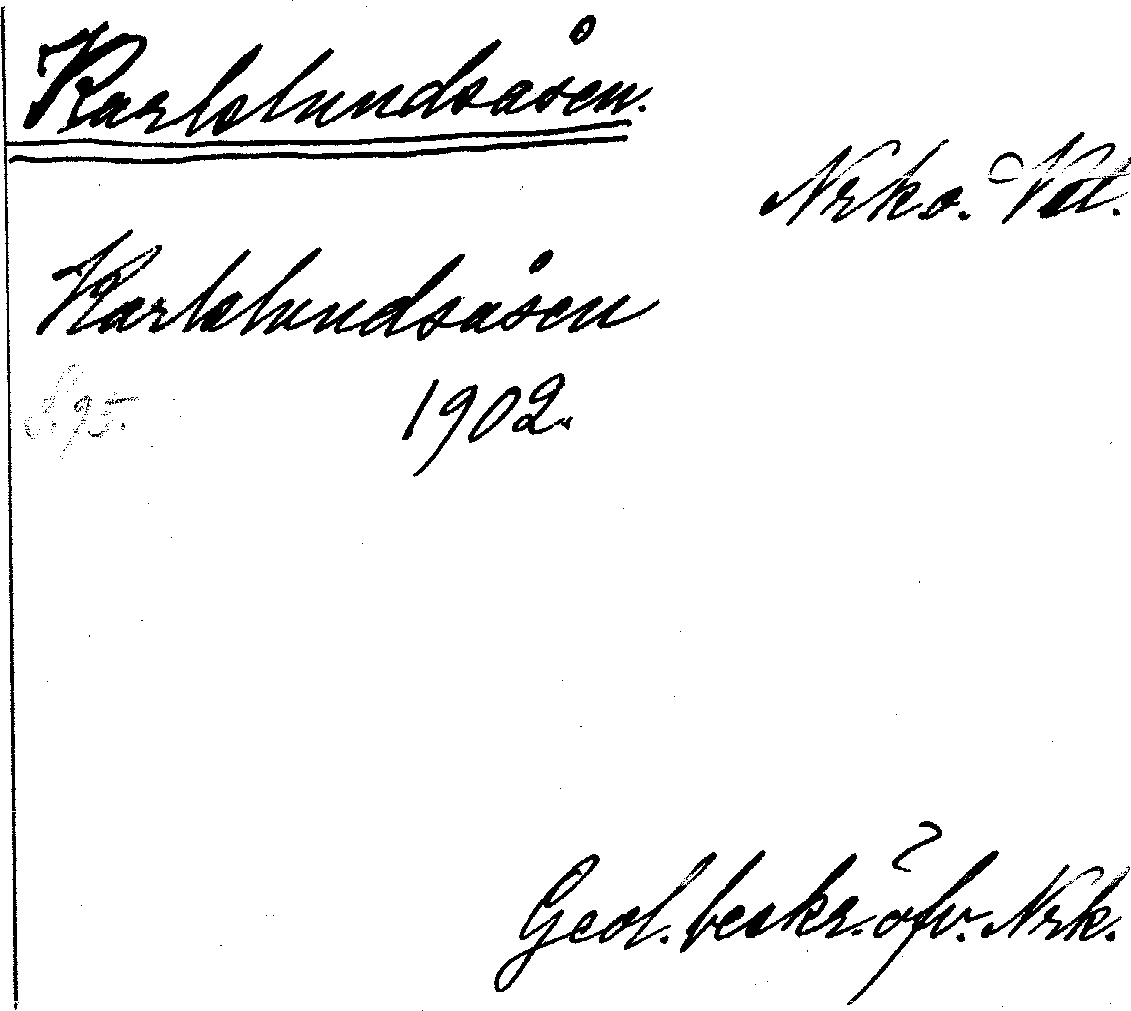 Karlslundsåsen.
Nrke. Nat.
Karlslundsåsen
S. 95. 1902.
Geol. beskr. öfv. Nrk.